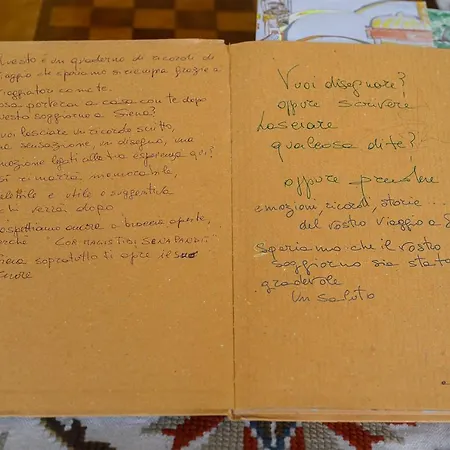 uesto è un quaderno di ricordi di
viaggio che speriamo si riempia grazie a
viaggiatori come te.
Cosa porterai a casa con te dopo
questo soggiorno a Siena?
Vuoi lasciare un ricordo scritto,
una sensazione, un disegno, una
emozione legati alla tua esperienza qui?
Così rimarrà memorabile,
e utile e suggestiva
chi verrà dopo
aspettiamo ancora a braccia aperte,
perché "COR MAGIS TIBI SENA PANDIT"
Siena soprattutto ti apre il suo
cuore
Vuoi disegnare?
oppure scrivere
Lasciare
qualcosa di te?
oppure prendere
emozioni, ricordi, storie...
del vostro viaggio a S
Speriamo che il vostro
soggiorno sia stato
gradevole
Un saluto